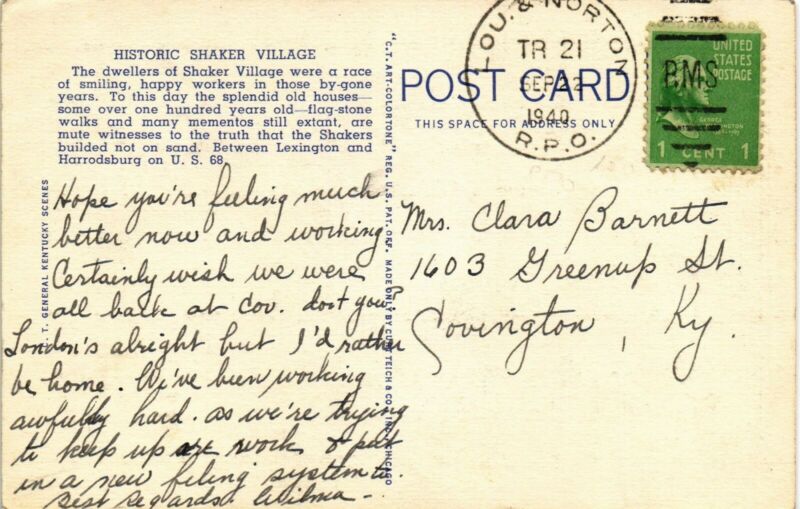 HISTORIC SHAKER VILLAGE
The dwellers of Shaker Village were a race
of smiling, happy workers in those by-gone
years. To this day the splendid old houses—
some over one hundred years old—flag-stone
walks and many mementos still extant, are
mute witnesses to the truth that the Shakers
builded not on sand. Between Lexington and
Harrodsburg on U. S. 68.
Hope you're feeling much
better now and working
Certainly wish we were
all back at Cov. don't you?
London's alright but I'd rather
be home. We've been working
awfully hard. as we're trying
to keep up work & put
in a new filing system to.
Best Regards. Wilma –
T. GENERAL KENTUCKY SCENES
"C.T. ART-COLORTONE" REG. U.S. PAT. OFF. MADE ONLY BY CURT TEICH & CO., INC., CHICAGO
POST CARD
THIS SPACE FOR ADDRESS ONLY
LOU. & NORTON
TR 21
SEP 22
1940
R.P.O.
RMS
UNITED
STATES
POSTAGE
GEORGE
WASHINGTON
1 CENT 1
Mrs. Clara Barnett
1603 Greenup St.
Covington, Ky.